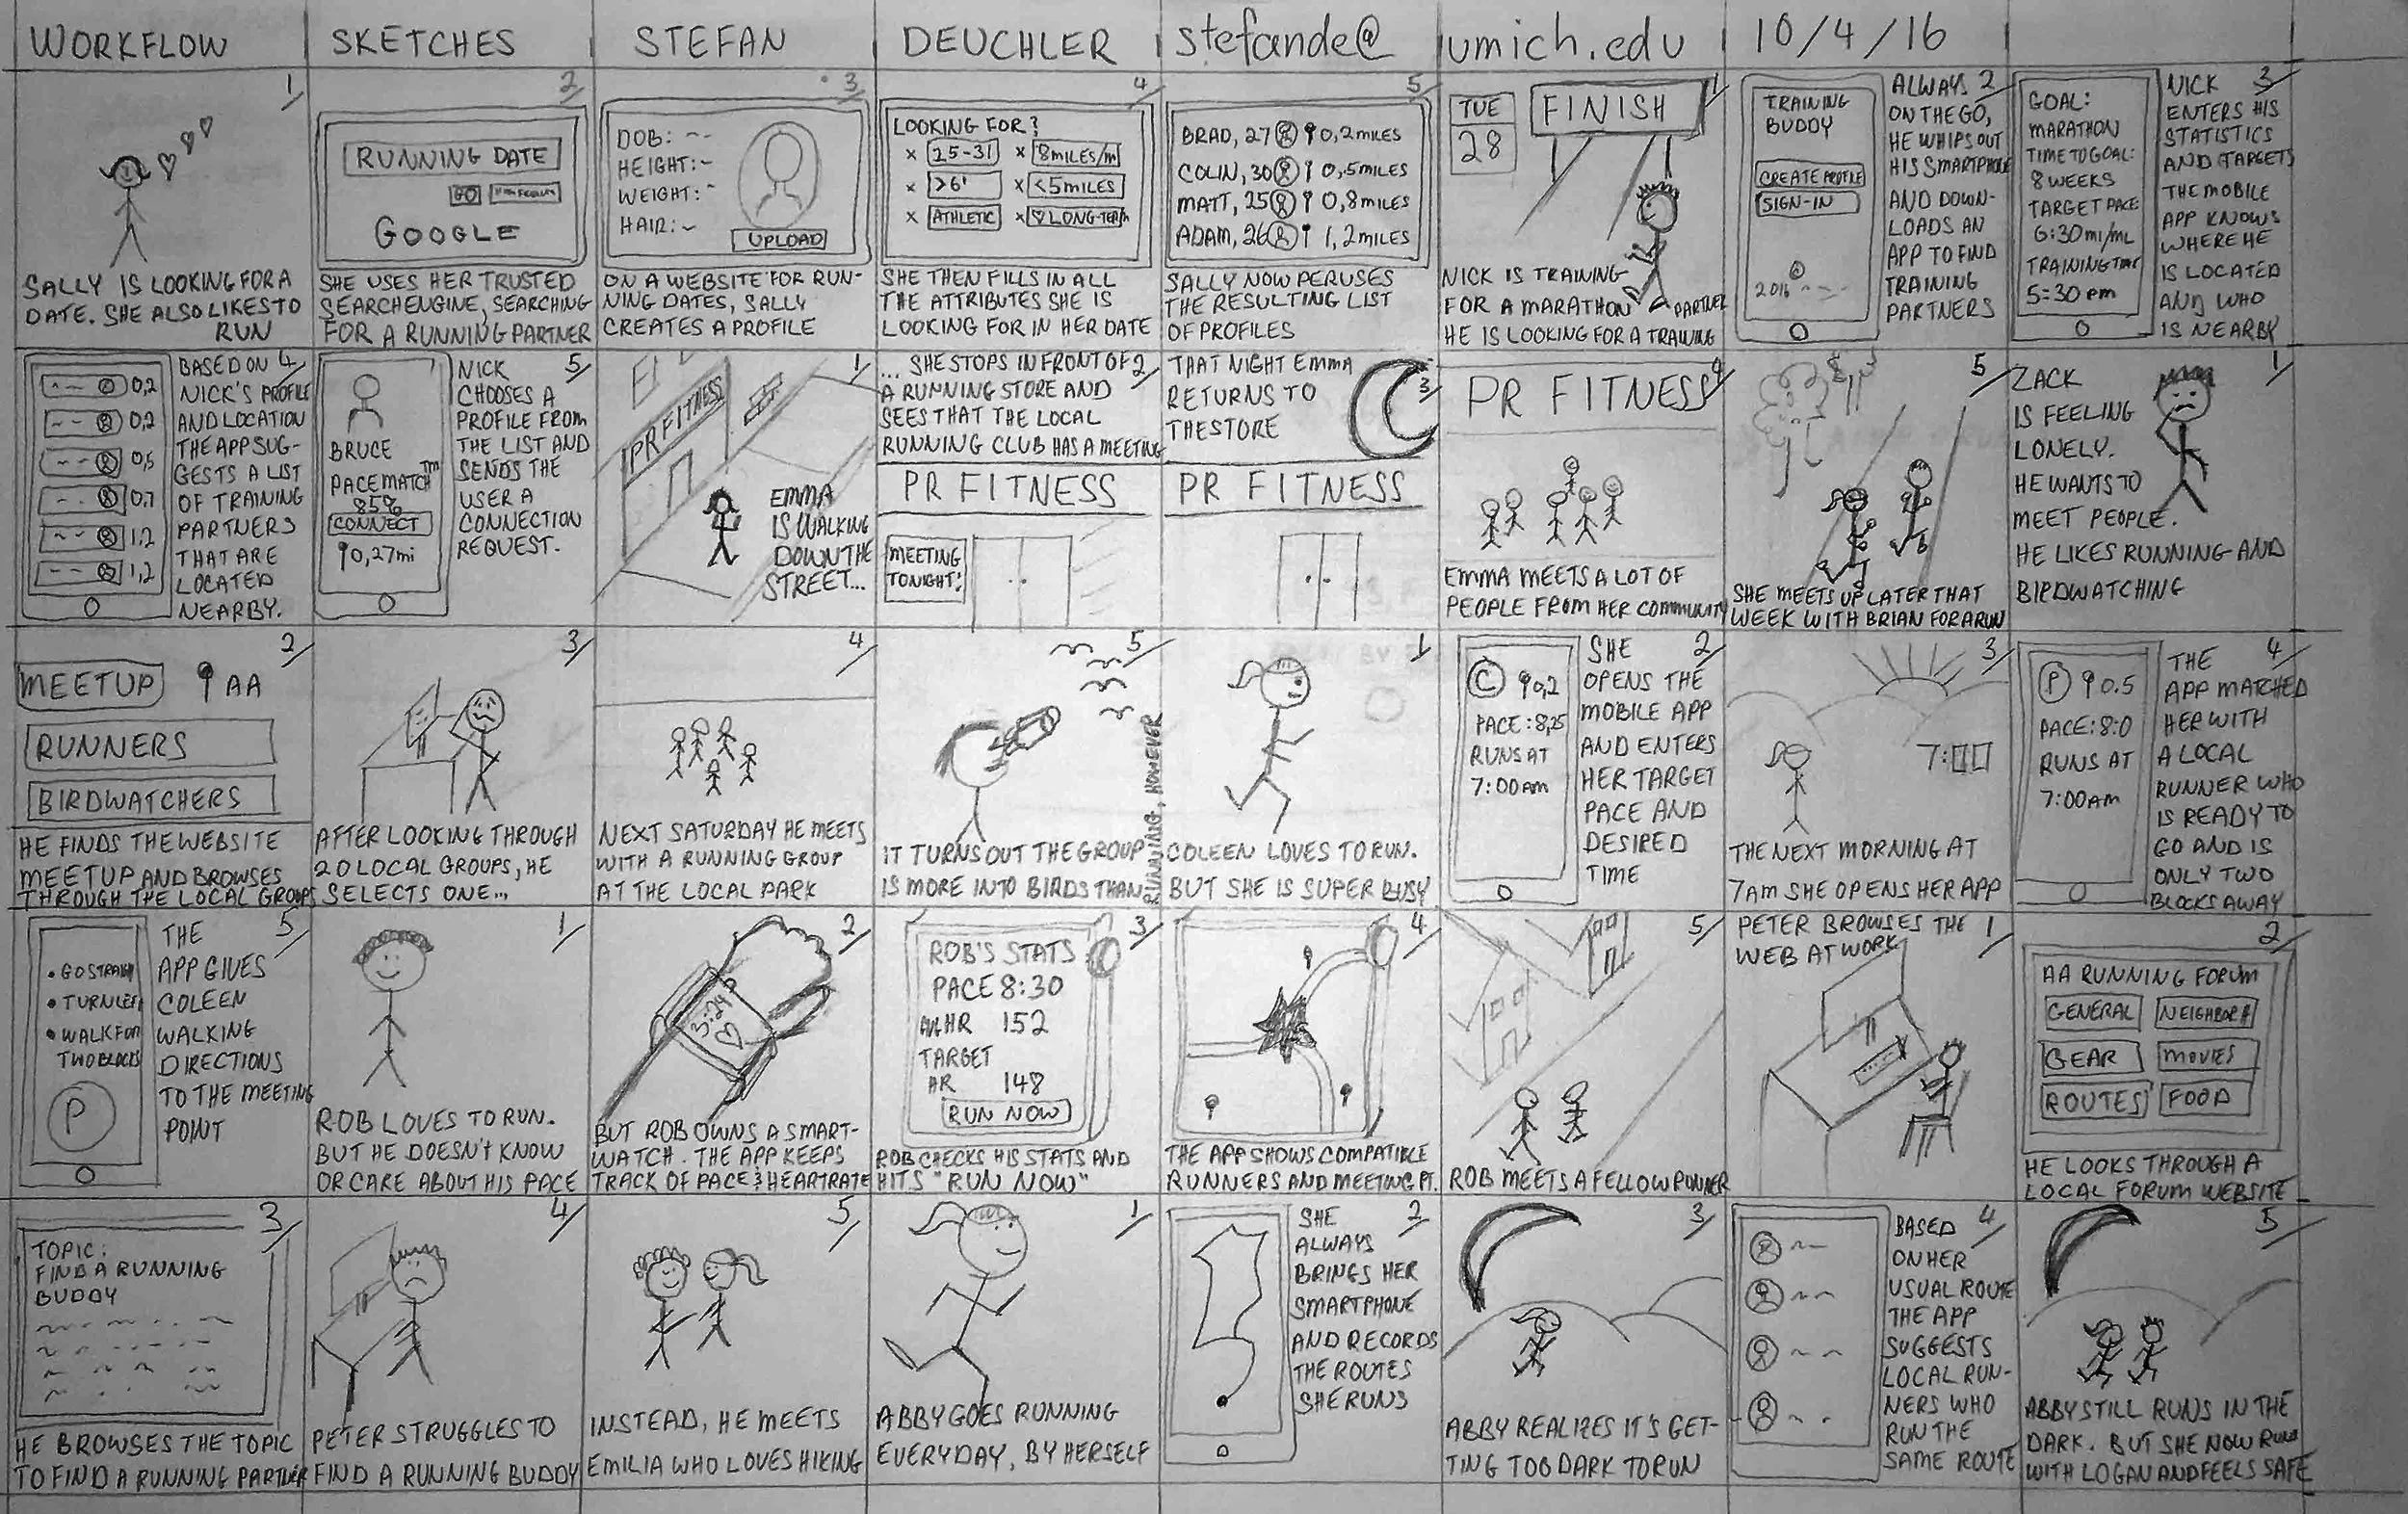 WORKFLOW SKETCHES STEFAN DEUCHLER stefande@ umich.edu 10/4/16
1
SALLY IS LOOKING FOR A
DATE. SHE ALSO LIKES TO
RUN
2
RUNNING DATE
GO
GOOGLE
SHE USES HER TRUSTED
SEARCHENGINE, SEARCHING
FOR A RUNNING PARTNER
3
DOB:
HEIGHT:
WEIGHT:
HAIR:
UPLOAD
ON A WEBSITE FOR RUN-
NING DATES, SALLY
CREATES A PROFILE
4
LOOKING FOR?
x 25-31 x 8MILES/M
x >6' x <5MILES
x ATHLETIC x LONG-TERM
SHE THEN FILLS IN ALL
THE ATTRIBUTES SHE IS
LOOKING FOR IN HER DATE
5
BRAD, 27 0,2MILES
COLIN, 30 0,5MILES
MATT, 25 0,8MILES
ADAM, 26 1,2MILES
SALLY NOW PERUSES
THE RESULTING LIST
OF PROFILES
1
TUE
28
FINISH
NICK IS TRAINING
FOR A MARATHON
HE IS LOOKING FOR A TRAINING
PARTNER
2
TRAINING
BUDDY
CREATE PROFILE
SIGN-IN
2016
ALWAYS
ON THE GO,
HE WHIPS OUT
HIS SMARTPHONE
AND DOWN-
LOADS AN
APP TO FIND
TRAINING
PARTNERS
3
GOAL:
MARATHON
TIME TO GOAL:
8 WEEKS
TARGET PACE
6:30 mi/mL
TRAINING TIME
5:30 pm
NICK
ENTERS HIS
STATISTICS
AND TARGETS
THE MOBILE
APP KNOWS
WHERE HE
IS LOCATED
AND WHO
IS NEARBY
4
0,2
0,2
0,5
0,7
1,2
1,2
BASED ON
NICK'S PROFILE
AND LOCATION
THE APP SUG-
GESTS A LIST
OF TRAINING
PARTNERS
THAT ARE
LOCATED
NEARBY.
5
BRUCE
PACEMATCH™
85%
CONNECT
0,27mi
NICK
CHOOSES A
PROFILE FROM
THE LIST AND
SENDS THE
USER A
CONNECTION
REQUEST.
1
PR FITNESS
EMMA
IS WALKING
DOWN THE
STREET...
2
... SHE STOPS IN FRONT OF
A RUNNING STORE AND
SEES THAT THE LOCAL
RUNNING CLUB HAS A MEETING
PR FITNESS
MEETING
TONIGHT!
3
THAT NIGHT EMMA
RETURNS TO
THE STORE
PR FITNESS
4
PR FITNESS
EMMA MEETS A LOT OF
PEOPLE FROM HER COMMUNITY
5
SHE MEETS UP LATER THAT
WEEK WITH BRIAN FOR A RUN
1
ZACK
IS FEELING
LONELY.
HE WANTS TO
MEET PEOPLE.
HE LIKES RUNNING AND
BIRDWATCHING
2
MEETUP AA
RUNNERS
BIRDWATCHERS
HE FINDS THE WEBSITE
MEETUP AND BROWSES
THROUGH THE LOCAL GROUPS
3
AFTER LOOKING THROUGH
20 LOCAL GROUPS, HE
SELECTS ONE...
4
NEXT SATURDAY HE MEETS
WITH A RUNNING GROUP
AT THE LOCAL PARK
5
IT TURNS OUT THE GROUP
IS MORE INTO BIRDS THAN
RUNNING, HOWEVER
1
COLEEN LOVES TO RUN.
BUT SHE IS SUPER BUSY
2
C 0,2
PACE: 8,25
RUNS AT
7:00am
SHE
OPENS THE
MOBILE APP
AND ENTERS
HER TARGET
PACE AND
DESIRED
TIME
3
7:00
THE NEXT MORNING AT
7AM SHE OPENS HER APP
4
P 0.5
PACE: 8:0
RUNS AT
7:00am
THE
APP MATCHED
HER WITH
A LOCAL
RUNNER WHO
IS READY TO
GO AND IS
ONLY TWO
BLOCKS AWAY
5
• GO STRAIGH
• TURN LEF
• WALK FOR
TWO BLOCKS
P
THE
APP GIVES
COLEEN
WALKING
DIRECTIONS
TO THE MEETING
POINT
1
ROB LOVES TO RUN.
BUT HE DOESN'T KNOW
OR CARE ABOUT HIS PACE
2
3:24
BUT ROB OWNS A SMART-
WATCH. THE APP KEEPS
TRACK OF PACE & HEARTRATE
3
ROB'S STATS
PACE 8:30
AVG HR 152
TARGET
HR 148
RUN NOW
ROB CHECKS HIS STATS AND
HITS "RUN NOW"
4
THE APP SHOWS COMPATIBLE
RUNNERS AND MEETING PT.
5
ROB MEETS A FELLOW RUNNER
1
PETER BROWSES THE
WEB AT WORK
2
AA RUNNING FORUM
GENERAL NEIGHBORH
GEAR MOVIES
ROUTES FOOD
HE LOOKS THROUGH A
LOCAL FORUM WEBSITE
3
TOPIC:
FIND A RUNNING
BUDDY
HE BROWSES THE TOPIC
TO FIND A RUNNING PARTNER
4
PETER STRUGGLES TO
FIND A RUNNING BUDDY
5
INSTEAD, HE MEETS
EMILIA WHO LOVES HIKING
1
ABBY GOES RUNNING
EVERYDAY, BY HERSELF
2
SHE
ALWAYS
BRINGS HER
SMARTPHONE
AND RECORDS
THE ROUTES
SHE RUNS
3
ABBY REALIZES IT'S GET-
TING TOO DARK TO RUN
4
BASED
ON HER
USUAL ROUTE
THE APP
SUGGESTS
LOCAL RUN-
NERS WHO
RUN THE
SAME ROUTE
5
ABBY STILL RUNS IN THE
DARK. BUT SHE NOW RUNS
WITH LOGAN AND FEELS SAFE